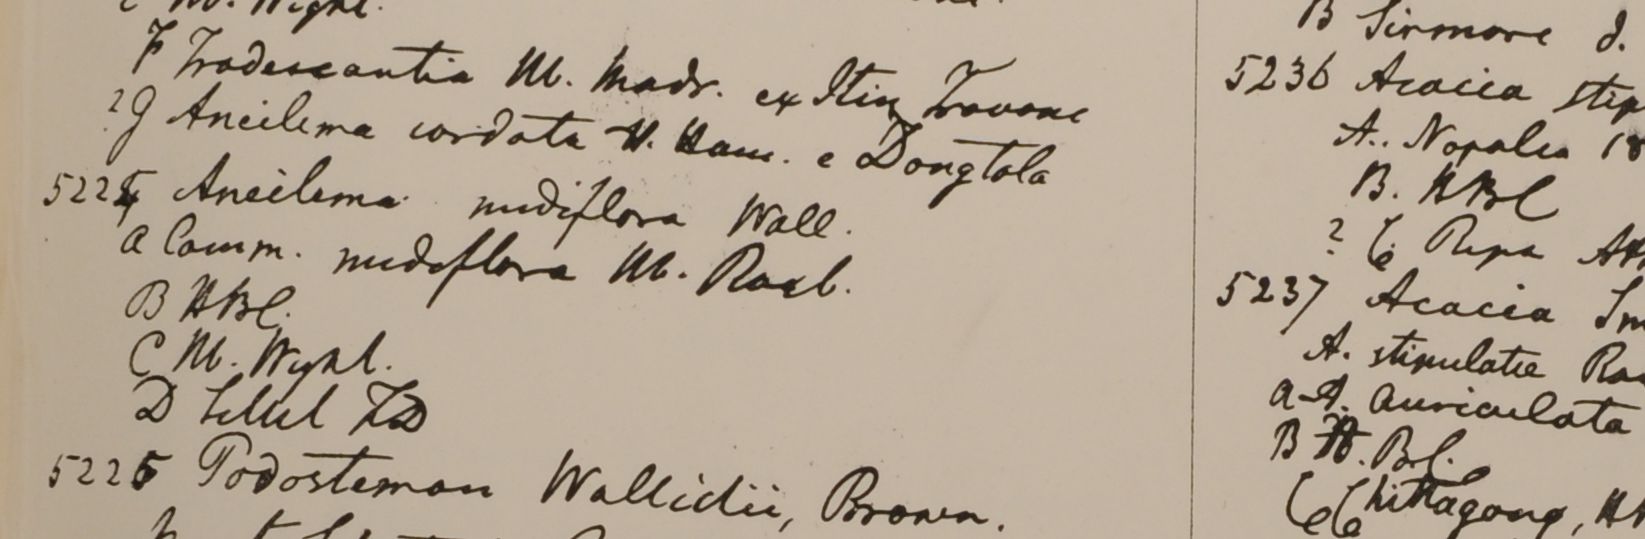 F Tradescantia Hb. Madr. ex Itin Travanc
? g Aneilema cordata H. Ham. e Dongtola
5224 Aneilema nudiflora Wall.
a Comm. nudiflora Hb. Roxb.
B HBC.
C Hb. Wight.
D
5225 Podostemon Wallichii, Brown.
B Sirmore d.
5236 Acacia stip
A. Nopalea 18
B. HBC
? C Ripa
5237 Acacia Sm
A. stipulata Rox
a A. auriculata
B H. B.C.
C Chittagong, H